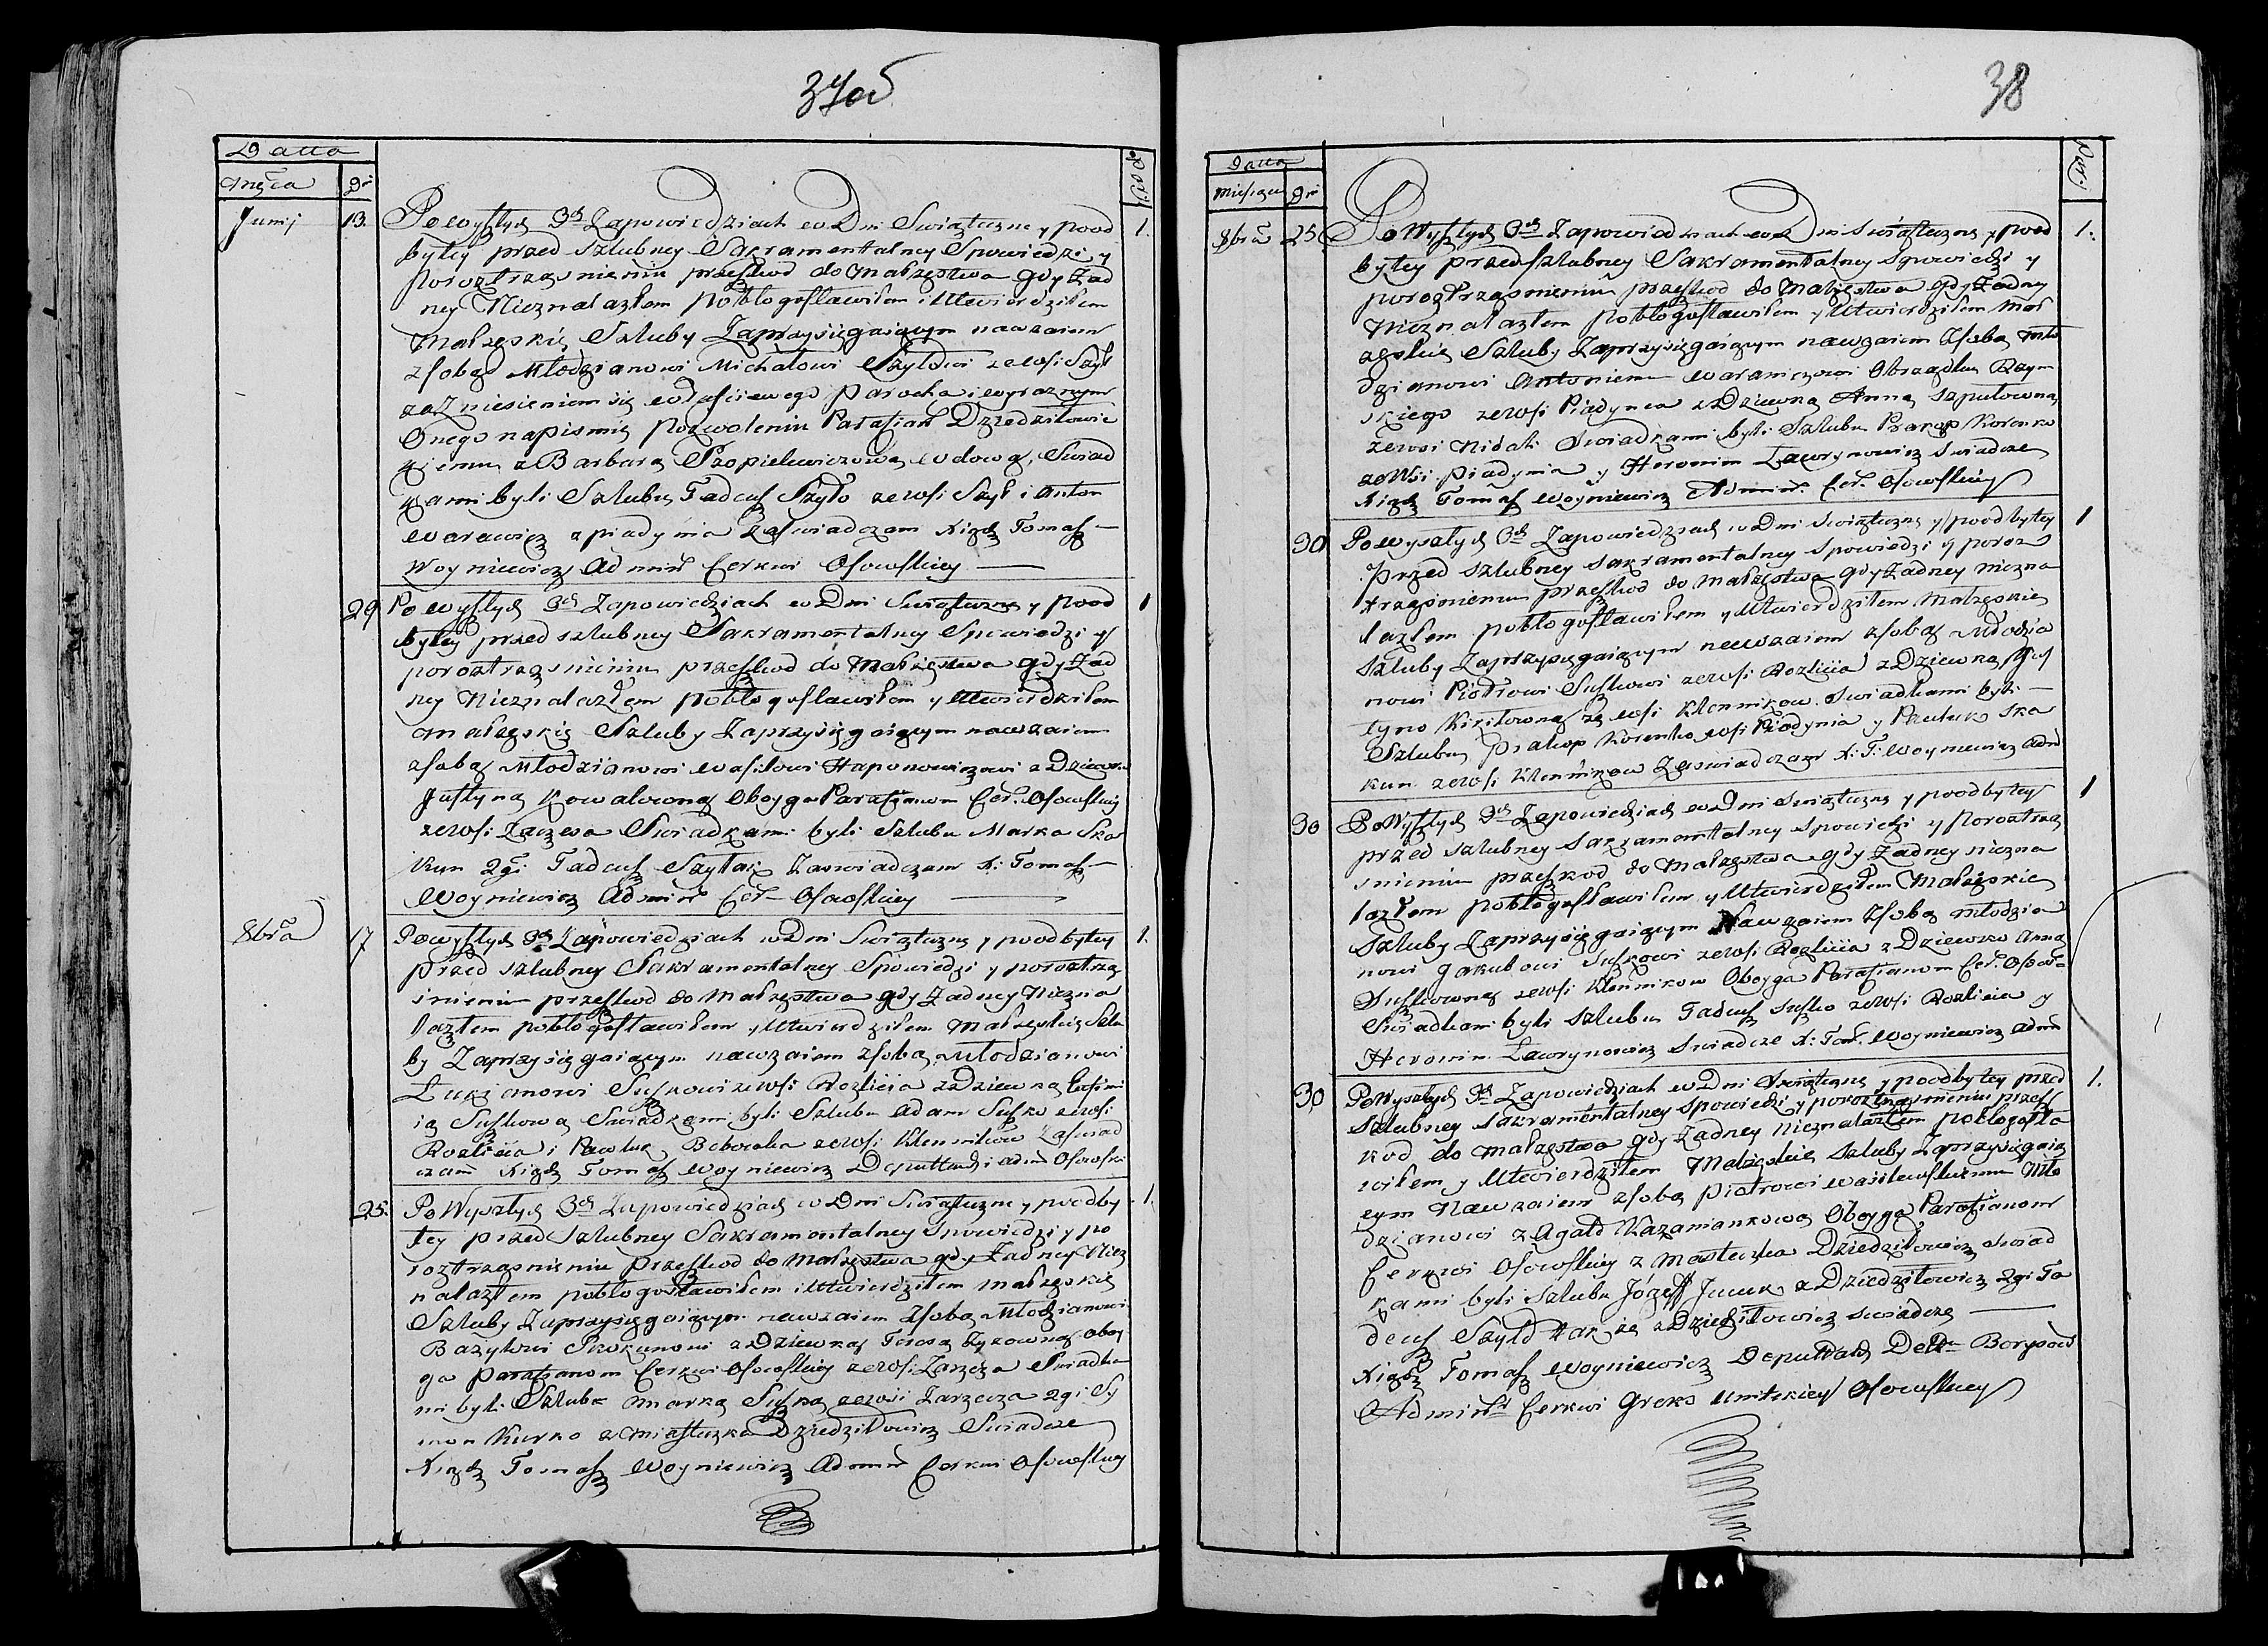 37об
Datta
Msca Dń
Junij 13. Po wyszłych 3ch Zapowiedziach w Dni Swiąteczne y pood 1.
bytey przed szlubney Sakramentalney Spowiedzi y
poroztrząsnieniu przeszkod do Małżęstwa gdy Zad
ney Nieznalazłem pobłogosławiłem i Utwierdziłem
Małżęskie Szluby Zaprzysięgaiącym nawzaiem
z sobą Młodzianowi Michałowi Szyłowi ze wsi Szył
za Zniesieniem się właściwego Parocha i wyraznym
Onego napismie pozwoleniu Parafian Dziedziłowic
kiemu z Barbarą Szopielewiczową wdową, Swiad
kami byli Szlubu Tadeusz Szyło ze wsi Szył i Anton
Warawicz z piadynia Zaswiadczam Xiądz Tomasz
Woyniewicz Admin Cerkwi Osowskiey
29 Po wyszłych 3ch Zapowiedziach w Dni Swiąteczne y pood 1
bytey przed szlubney Sakramentalney Spowiedzi y
poroztrząsnieniu przeszkod do Małżęstwa gdy Zad
ney Nieznalazłem pobłogosławiłem y Utwierdziłem
małżęskie Szluby Zaprzysięgaiącym nawzaiem
z sobą Młodzianowi Wasilowi Haponowiczowi z Dziewką
Justyną Kowalowną Oboyga Parafianom Cer. Osowskiey
ze wsi Zaczesa Swiadkami byli Szlubu Marka Sko
kun 2gi Tadeusz Szyłak Zaswiadczam X: Tomasz
Woyniewicz Admin Cer Osowskiey
8bra 17 Po wyszłych 3ch Zapowiedziach w Dni Swiąteczne y poodbytey 1.
przed szlubney Sakramentalney Spowiedzi y poroztrzą
snieniu przeszkod do Małżęstwa gdy Zadney Niezna
lazłem pobłogosławiłem y Utwierdziłem Małżęskie Szlu
by Zaprzysięgaiącym nawzaiem z sobą Młodzianowi
Łukjanowi Suszkowi ze wsi Rozlicia z Dziewką Eufimi
ią Suszkową Swiadkami byli Szlubu Adam Suszko ze wsi
Rozlicia i Pawluk Boborka ze wsi Klennikow Zaswiad
czam Xiądz Tomasz Woyniewicz Deputtach i Admin Osowski
25. Po Wyszłych 3ch Zapowiedziach w Dni Swiąteczne y poodby 1.
tey przed Szlubney Sakramentalney Spowiedzi y po
roztrzasnieniu Przeszkod do Małżęstwa gdy Zadney Niez
nalazłem pobłogosławiłem i Utwierdziłem małżęskie
Szluby Zaprzysięgaiącym nawzaiem Zsobą Młodzianowi
Bazylowi Skokunowi z Dziewką Teresą Zyzowną oboy
ga Parafianom Cerkwi Osowskiey ze wsi Zarzcza Swiadka
mi byli Szlubu Marka Suszka ze wsi Zarzecza 2gi Sy
mon Kurko z Miasteczka Dziedziłowicz Swiadcze
Xiądz Tomasz Woyniewicz Admin Cerkwi Osowskiey
38
Datta
Miesząca Dni
8bra 25 Po Wyszłych 3ch Zapowiedziach w Dni Swiąteczne y pood 1.
bytey przed Szlubney Sakramentalney Spowiedzi y
poroztrząsnieniu przeszkod do Małżęstwa gdy Zadney
Nieznalazłem pobłogosławiłem y Utwierdziłem Mał
zęskie Szluby Zaprzysięgaiącym nawzaiem Zsobą Mło
dzianowi Antoniemu Waraniczowi Obrządku Rzym
skiego ze wsi Piadynia z Dziewką Anną Szputowną
ze wsi Nidali Swiadkami byli Szlubu Prakop Korenko
ze Wsi piadynia y Heronim Ławrynowicz Swiadcze
Xiądz Tomasz Woyniewicz Admin. Cer. Osowskiey
30 Po wyszłych 3ch Zapowiedziach w Dni Swiąteczne y poodbytey 1
przed szlubney sakramentalney Spowiedzi y poroz
trząsnieniu przeszkod do Małżęstwa gdy Zadney niezna
lazłem pobłogosławiłem y Utwierdziłem Małżęskie
Szluby Zaprzysięgaiącym nawzaiem z sobą Młodzia
nowi Piotrowi Suszkowi ze wsi Rozlicia z Dziewką Jus
tyno Kiriłowną ze wsi Klennikow. Swiadkami byli
Szlubu Prakop Korenko wsi Piadynia y Pauluk Sko
kun ze wsi Klennikow Zaswiadczam X: T: Woyniewicz Adm
30 Po Wyszłych 3ch Zapowiedziach w Dni Swiąteczne y poodbytey 1
przed szlubney Sakramentalney Spowiedzi y Poroztrzą
snieniu przeszkod do Małżęstwa gdy Zadney niezna
lazłem pobłogosławiłem y Utwierdziłem Małżęskie
Szluby Zaprzysięgaiącym Nawzaiem Zsobą młodzia
nowi Jakubowi Suszkowi ze wsi Rozlicia z Dziewko Anną
Suszkowną ze wsi Klennikow Oboyga Parafianom Cer. Osows
Swiadkami byli Szlubu Tadeusz Suszko ze wsi Rozlicia y
Heronim Ławrynowicz Swiadcze X: Tom. Woyniewicz Adm
30 Po Wyszłych 3ch Zapowiedziach w Dni Swiąteczne y poodbytey przed 1.
Szlubney Sakramentalney Spowiedzi y poroztrząsnieniu przesz
kod do małżęstwa gdy Zadney nieznalazłem pobłogosła
wiłem y Utwierdziłem Małżęskie Szluby Zaprzysięgaią
cym Nawzaiem z sobą Piotrowi Wasilewskiemu Mło
dzianowi z Agatą Kazaniankową Oboyga Parafianom
Cerkwi Osowskiey z Mastečzka Dziedziłowicz, swiad
kami byli Szlubu Józeff Jucuk z Dziedziłowicz 2gi Ta
deusz Szyło tak że z Dziedziłowicz swiadczę
Xiądz Tomasz Woyniewicz Deputtach Deka Borysow
Admintr Cerkwi Greko Unitskiey Osowskiey